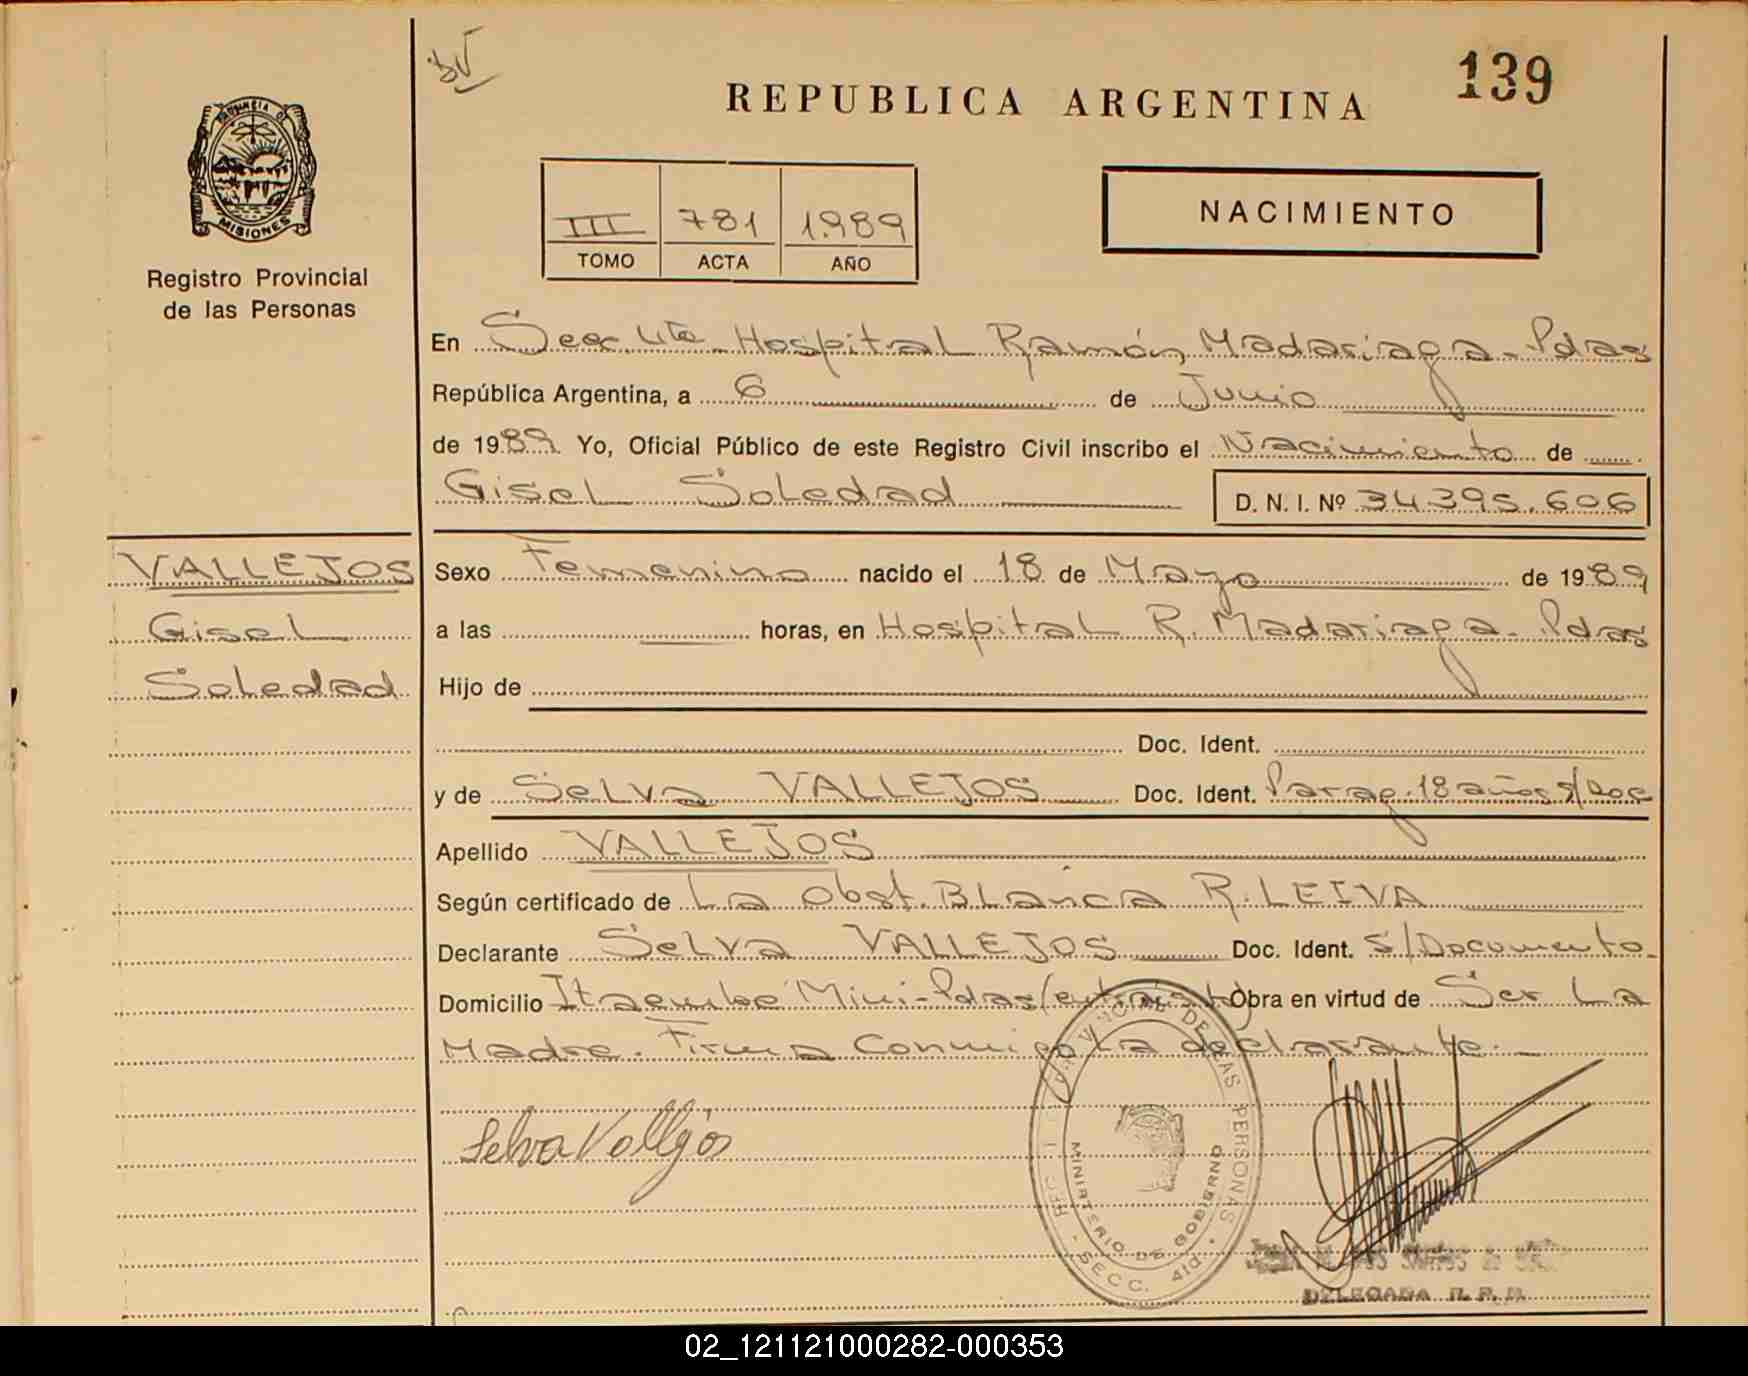 139
REPUBLICA ARGENTINA
PROVINCIA DE
MISIONES
Registro Provincial
de las Personas
III 781 1.989
TOMO ACTA AÑO
NACIMIENTO
En Secc. 4ta. Hospital Ramón Madariaga - Pdas
República Argentina, a 6 de Junio
de 1989 Yo, Oficial Público de este Registro Civil inscribo el Nacimiento de
Gisel Soledad D. N. I. Nº 34.395.606
VALLEJOS
Gisel
Soledad
Sexo Femenino nacido el 18 de Mayo de 1989
a las horas, en Hospital R. Madariaga - Pdas
Hijo de
Doc. Ident.
y de Selva VALLEJOS Doc. Ident. Parag. 18 años s/Doc
Apellido VALLEJOS
Según certificado de La Obst. Blanca R. LEIVA
Declarante Selva VALLEJOS Doc. Ident. S/Documento.
Domicilio Itaembé Mini - Pdas Obra en virtud de Ser La
Madre. Firma Conmigo La declarante.
Selva Vallejos
PROVINCIAL DE LAS PERSONAS
MINISTERIO DE GOBIERNO
SECC. 4ta.
DELEGADA R. P. P.
02_121121000282-000353